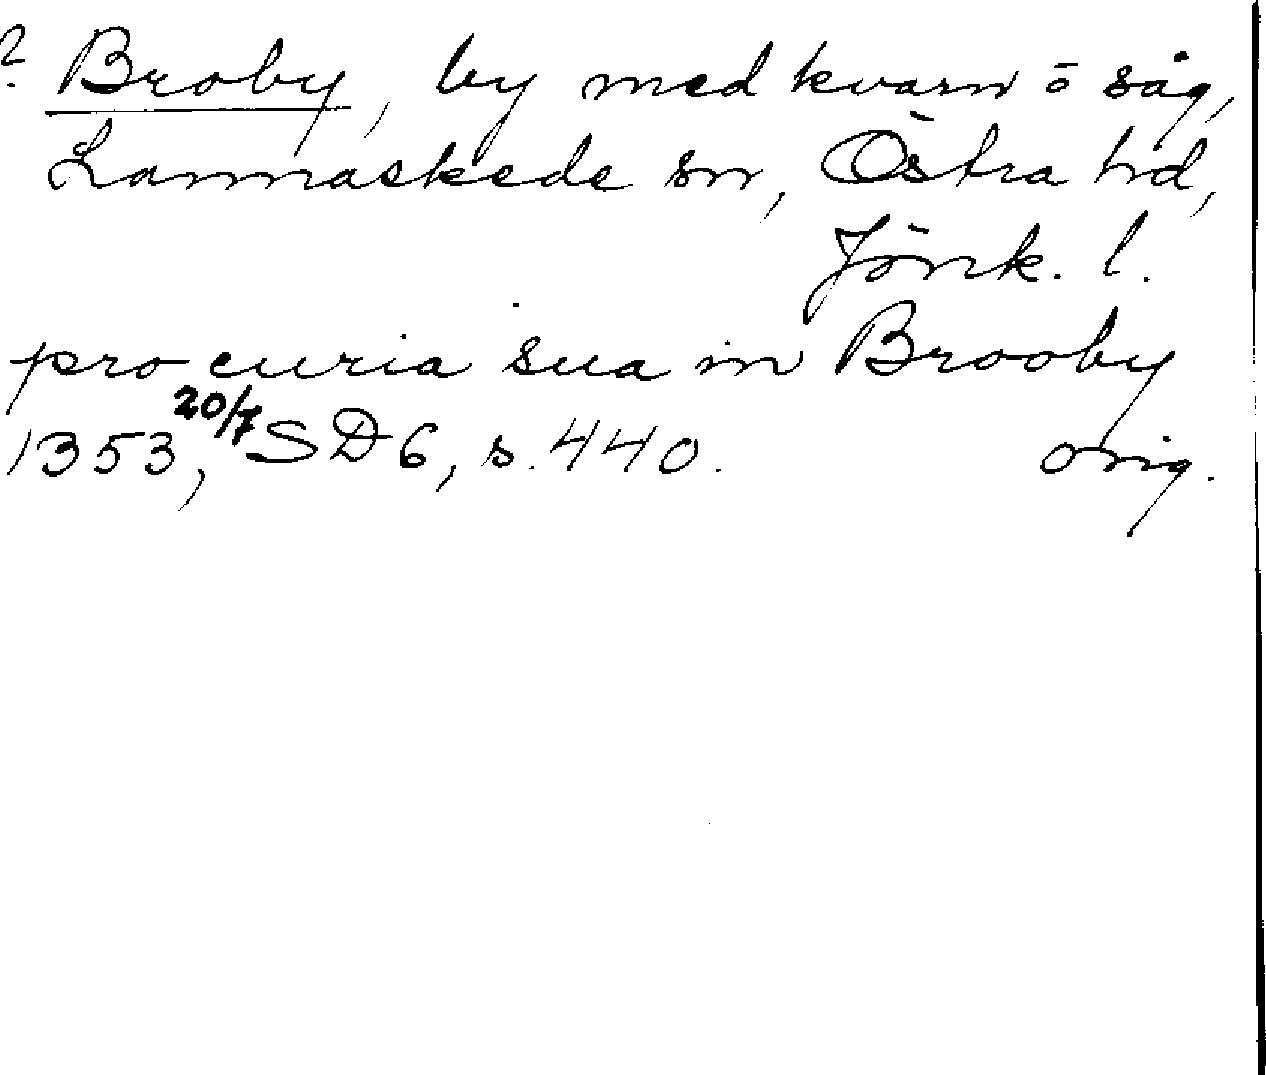 ? Broby, by med kvarn o såg,
Lannaskede sn, Östra hd,
Jönk. l.
pro curia sua in Brooby
1353, 20/7 SD 6, s. 440. orig.